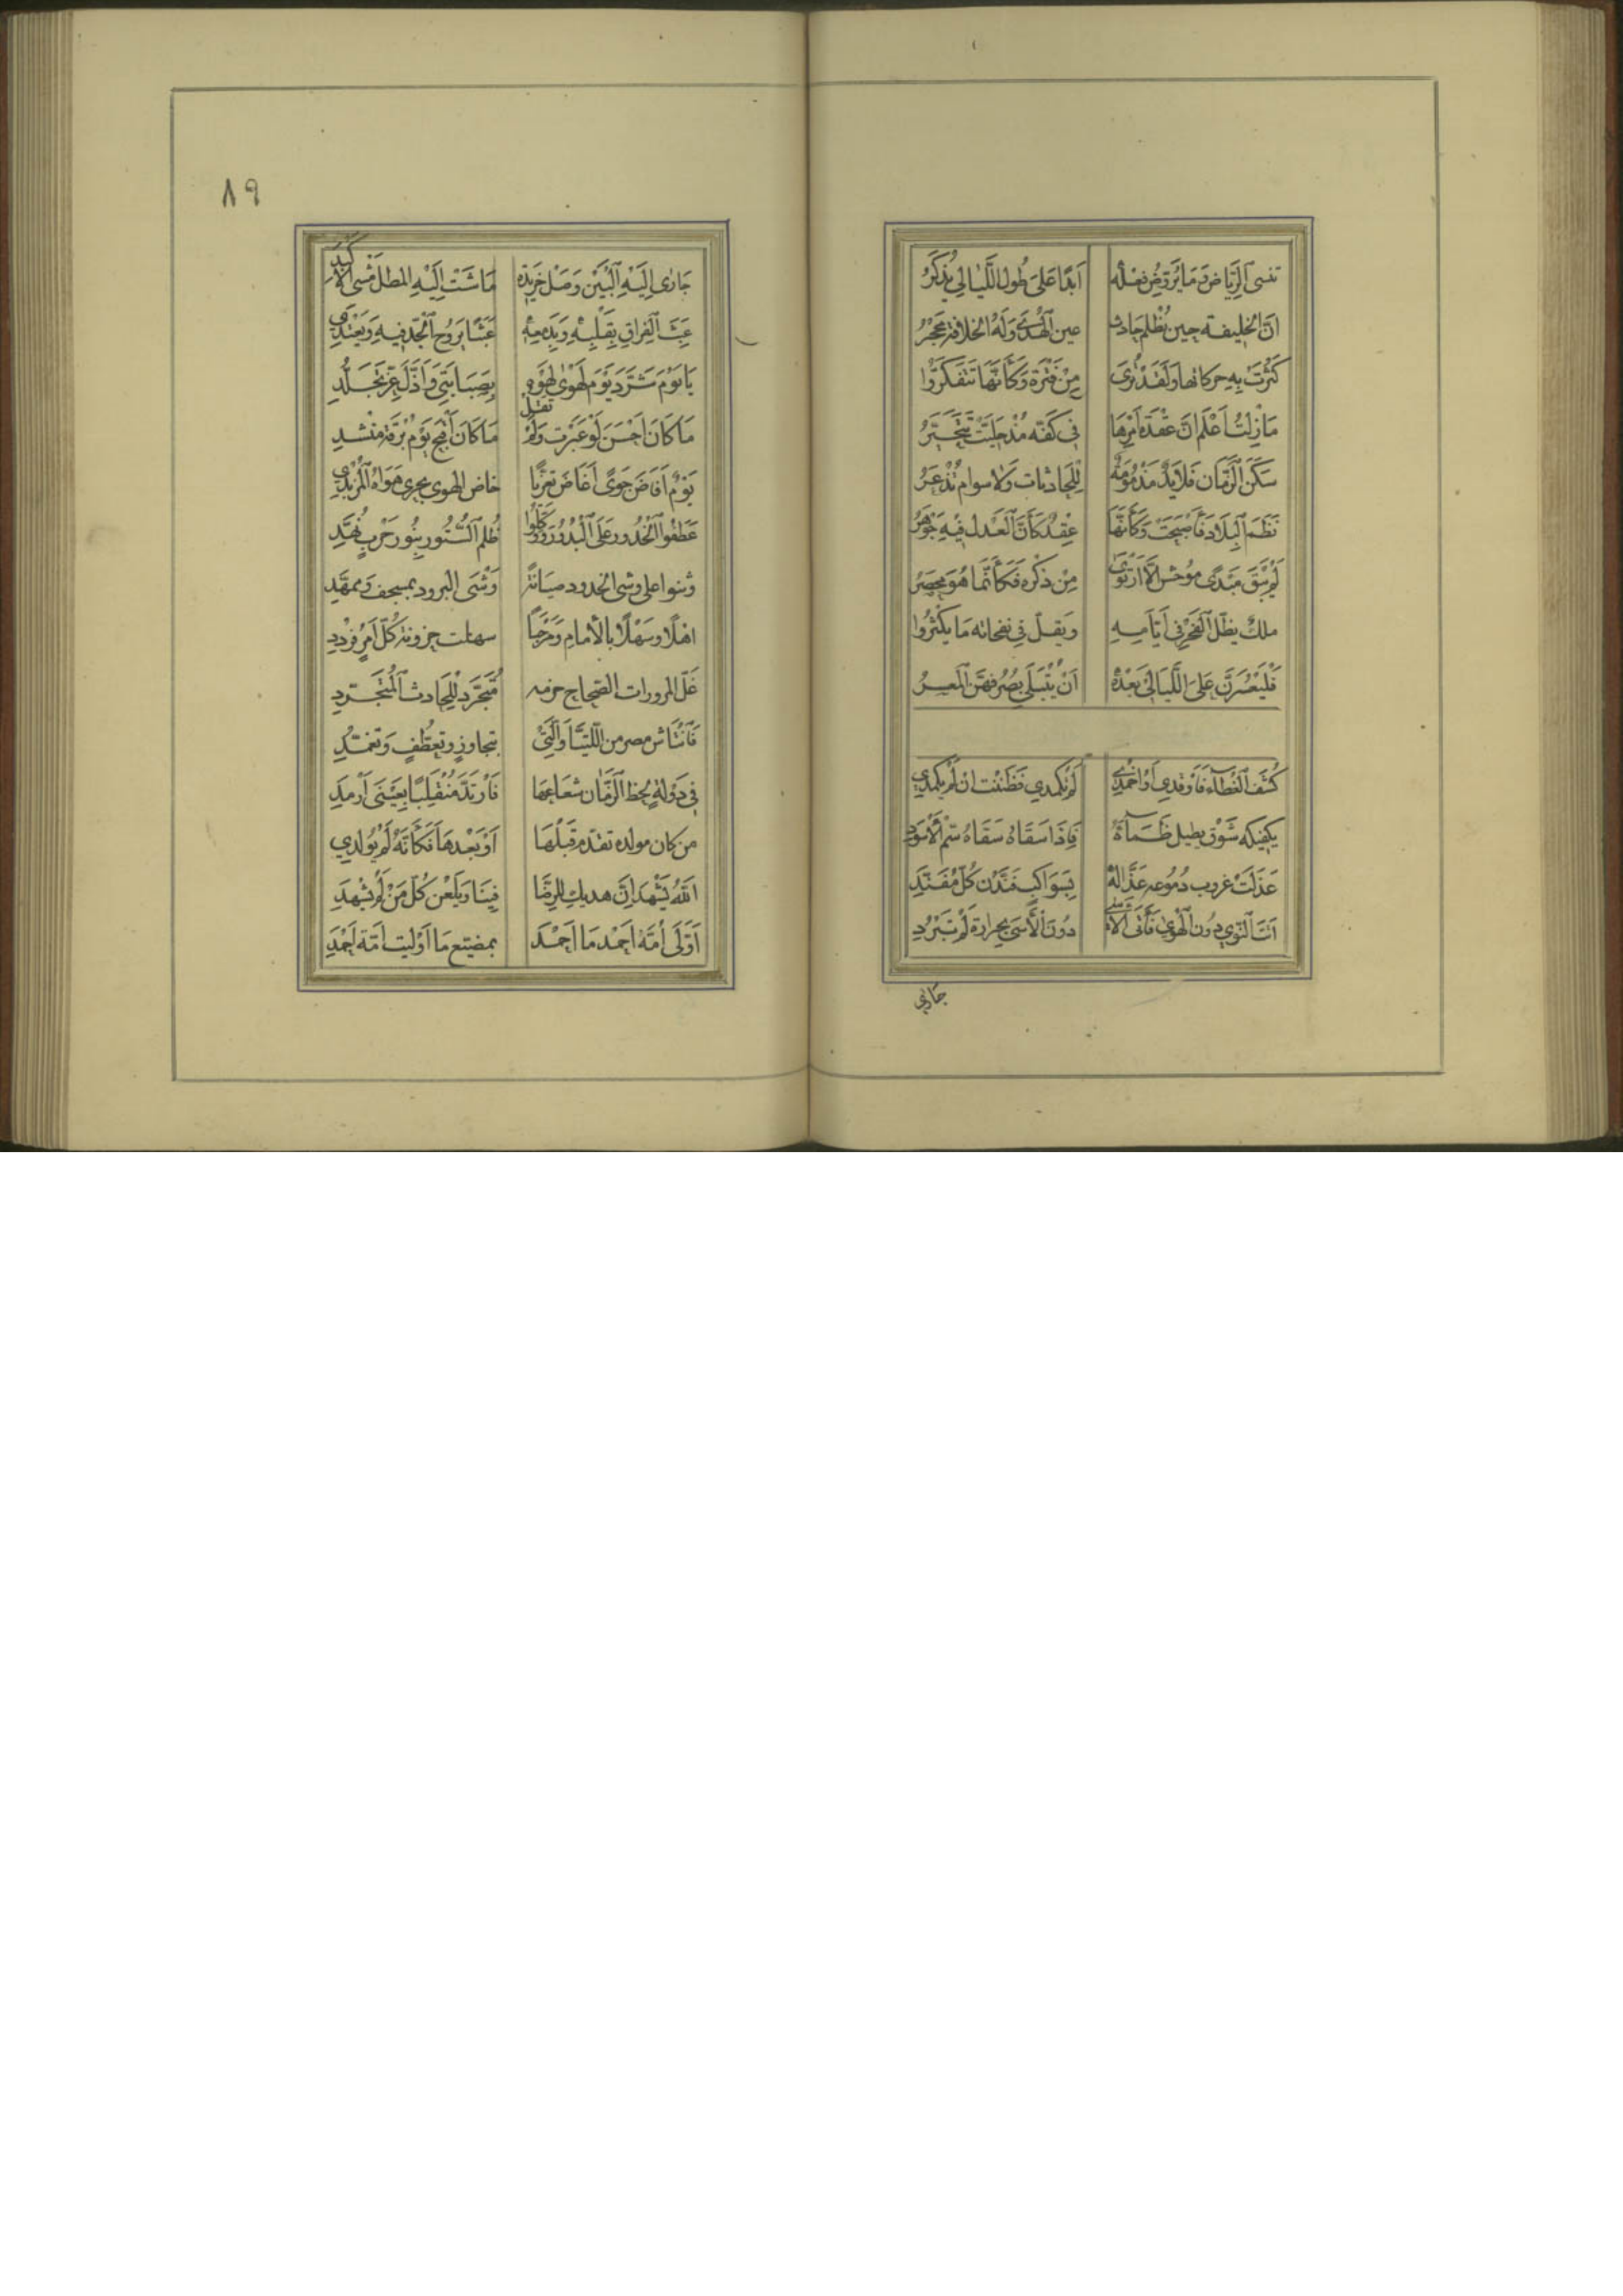 تنسى الرياض وَمَا يُرَوّضُ فعْلُه أَبَدًا عَلَى طُولِ اللَّيَالِي يُذكَرُ
انّ الخليفة حِين يُظْلم حَادث عين الهُدَى وَلَهُ الخلافة مَحْجَرُ
كَثُرَتْ بِهِ حركاتها وَلَقَدْ تُرَى مِنْ فَتْرَةٍ وَكَأَنَّهَا تَتَفَكَّرُ
مَا زِلْتُ أَعْلَم انّ عقْدَةَ أَمْرِهَا فِي كَفّه مُذْ خُلِّيَتْ تَتَخَيَّرُ
سَكَنَ الزّمَان فَلَا يَدٌ مَذْمُومَةٌ لِلْحَادثات وَلا سوام تُذْعَرُ
نَظَمَ البِلَادَ فَأَصْبَحَتْ وَكَأَنّهَا عِقْدٌ كَأَنّ العَدل فِيهِ جَوْهَرُ
لَمْ يَبْقَ مَبْدًى موُحش الّا ارْتَوَى مِنْ ذِكْره فَكَأنّما هُوَ محضَرُ
ملكٌ يضلّ الفَخْرُ فِي أَيّامِهِ ويقلّ فِي نفحاته مَا يَكْثُرُ
فَلْيَعْسُرَنّ عَلَى اللَّيَالِي بَعْدَهُ أَنْ يُبْتَلَى بِصُرُوفِهِنّ المُعْسِرُ
كُشِفَ الغِطَآء فَأَوْقِدِي أَوْ اخْمِدِي لَمْ تَكْمَدِي فَظَنَنْت ان لَمْ يَكْمَدِ
يكفيكه شَوْق يطيل ظَمَآءَهُ فَإِذَا سَقَاهُ سَقَاهُ سُمّ الأَسْوَدِ
عَذَلَتْ غروب دُمُوعه عُذَّالهُ بِسَوَاكِبٍ فَنّدْن كُلّ مُفَنّدِ
أتَتِ النّوَى دُونَ الهَوَى فَأَتَى الأَسَى دُونَ الأُسَى بِحرارة لَمْ تَبْرُدِ
جاري
٨٩
جَارَى إِلَيْهِ البَيْن وَصْل خَرِيدَة مَاشَتْ إِلَيْهِ المطلَ مَشْى الأكْبَدِ
عَبِثَ الفِرَاقُ بِقَلْبِهِ وَبِدَمْعِهِ عَبَثًا يَرُوح الجدّ فِيهِ وَيَغْتَدِي
يَا يَوْمَ شَرَّدَ يَوْمَ لَهْوِي لَهْوهُ بِصَبَابَتِي وَأَذَلَّ عِزَّ تَجَلُّدِي
مَا كَانَ أَحْسَنَ لَوْ غَبَرْت وَلَمْ تقل مَا كَانَ أَقْبَح يَوْم بُرْقَة مُنْشِدِ
يَوْمٌ أَفَاضَ جَوًى أَغَاضَ تَعَزّيًا خاض الهوى بَحْرَى هَوَاهُ المُزْبِدِ
عَطَفُوا الخُدُور عَلَى البُدُورِ وَوَكَّلُوا ظُلم السُّتُور بِنُور حُورٍ نُهَّدِ
وثنوا على وشى الخدود صيانةً وَشْىَ البرود بمسجف وممهّدِ
اهْلًا وسَهْلًا بالأمام ومَرْحَبًا سهلت حزونة كُلّ أمرٍ قُرْدُدِ
غَلّ المرورات الصحاح عزمه مُتَجَرّد لِلْحَادث المُتَجَرّدِ
فَانتاش مصر من اللّتيّا وَالّتِي بتجاوزٍ وتعطّفٍ وَتغمّدِ
فِي دَوْلَةٍ لحظ الزّمَان شعَاعهَا فَارْتَدّ مُنْقَلِبًا بِعَيْنَى أَرْمَدِ
من كان مولده تقدّم قَبْلَهَا أَوْ بَعْدهَا فَكَأَنّهُ لَمْ يُولَدِ
اللهُ يَشْهَد إِنّ هديك لِلرِضَا فِينَا وَيَلْعَن كُلّ مَنْ لَمْ يَشْهَدِ
أَوَّلَى أُمَّة أَحْمَد مَا أَحْمَد بمضيّع مَا أَوْليت أمّة أَحْمَدِ